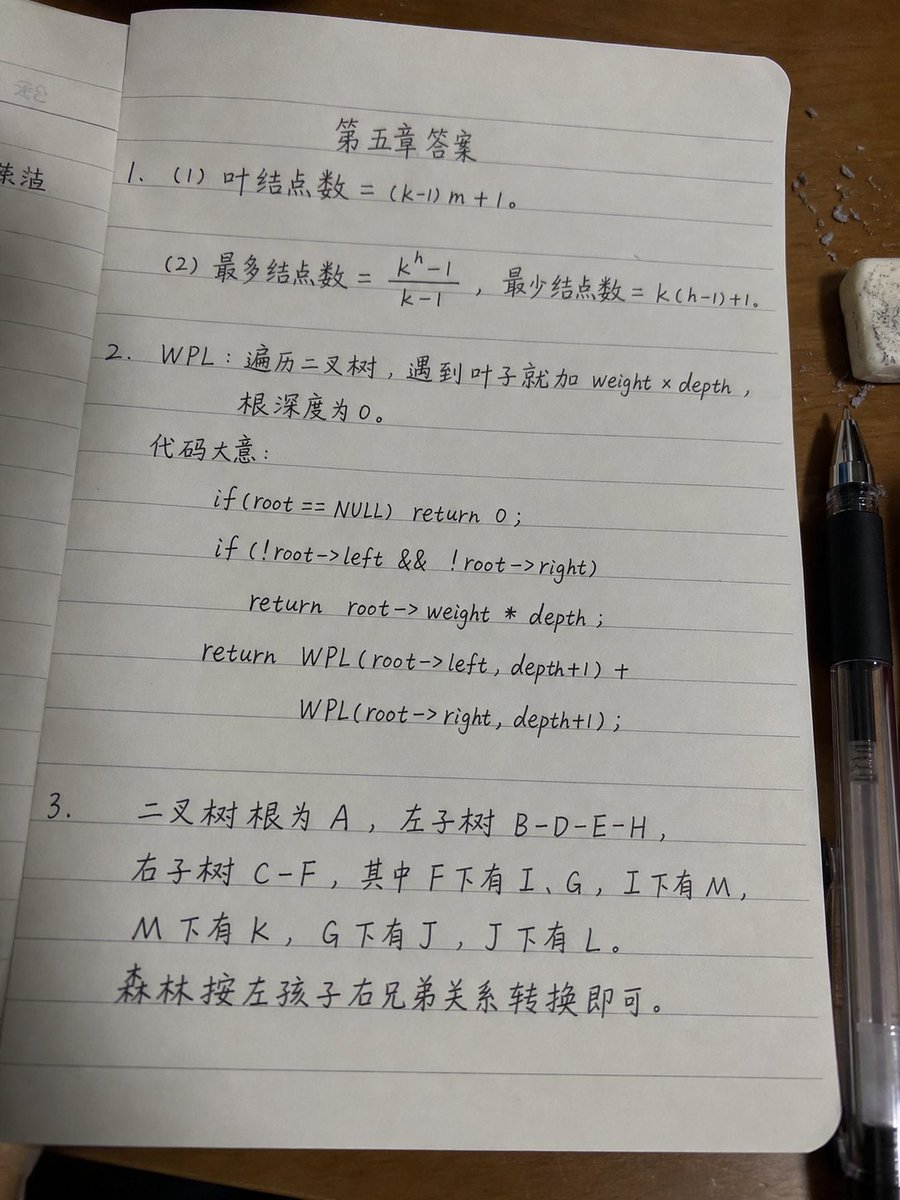 第五章答案
1. (1) 叶结点数 = (k-1) m + 1。
(2) 最多结点数 = (k^h - 1)/(k - 1) , 最少结点数 = k(h-1)+1。
2. WPL : 遍历二叉树, 遇到叶子就加 weight × depth,
根深度为 0。
代码大意:
if(root == NULL) return 0 ;
if (!root->left && !root->right)
return root-> weight * depth ;
return WPL(root->left, depth+1) +
WPL(root->right, depth+1) ;
3. 二叉树根为 A , 左子树 B-D-E-H,
右子树 C-F , 其中 F 下有 I、G , I 下有 M,
M 下有 K , G 下有 J , J 下有 L 。
森林按左孩子右兄弟关系转换即可。